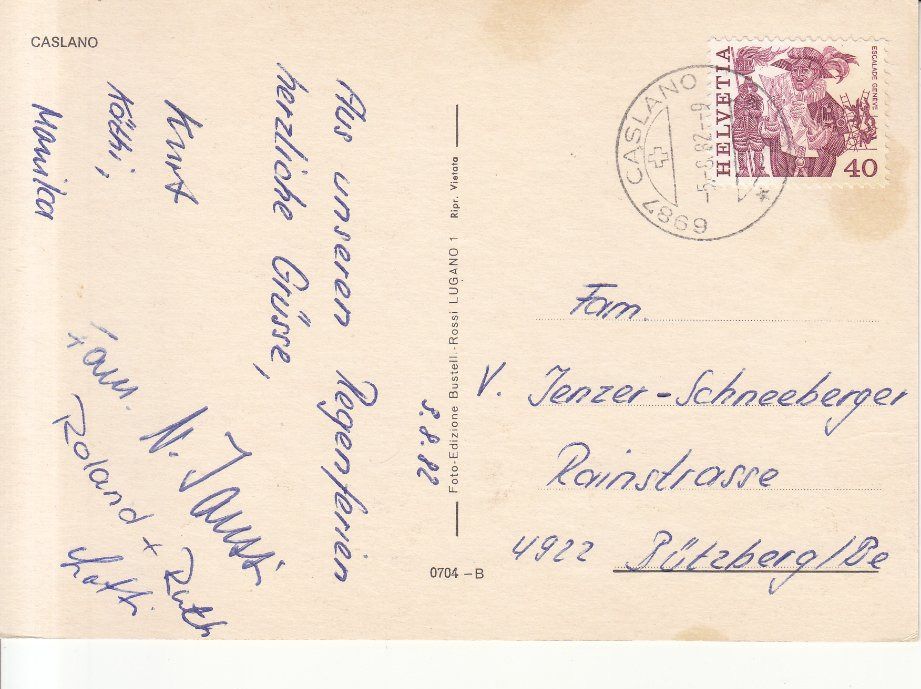 CASLANO
Aus unseren Regenferien
herzliche Grüsse,
Kurt
Käthi,
Manika
Fam.
Roland + Ruth
5.8.82
Foto-Edizione Bustell.-Rossi LUGANO 1 Ripr. Vietata
0704 - B
6987 CASLANO
-5.-8.82.-9
HELVETIA
ESCALADE GENEVE
40
Fam.
V. Jenzer-Schneeberger
Rainstrasse
4922 Bützberg/Be